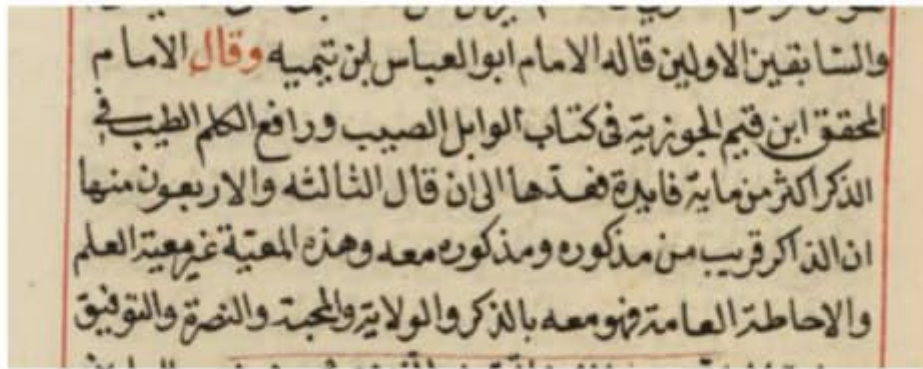 والسابقين الاولين قاله الامام ابو العباس ابن تيميه وقال الامام
المحقق ابن قيم الجوزية فى كتاب الوابل الصيب ورافع الكلم الطيب فى
الذكر اكثر من ماية فايدة فعدها الى ان قال الثالثه والاربعون منها
ان الذاكر قريب من مذكوره ومذكوره معه وهذه المعية غير معية العلم
والاحاطة العامة فهو معه بالذكر والولاية والمحبة والنصرة والتوفيق